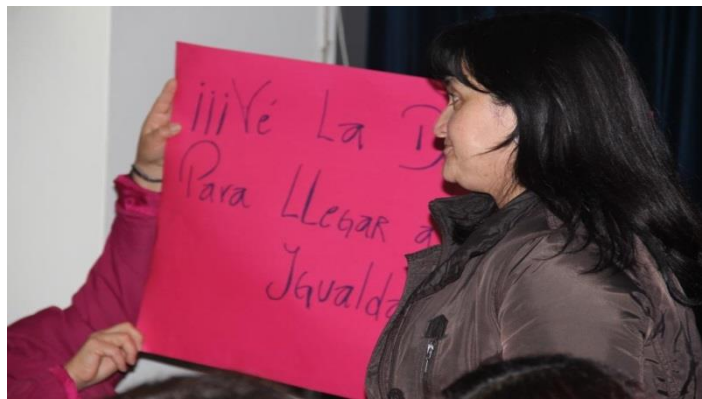 ¡¡¡Vé La D
Para LLegar a
Igualda